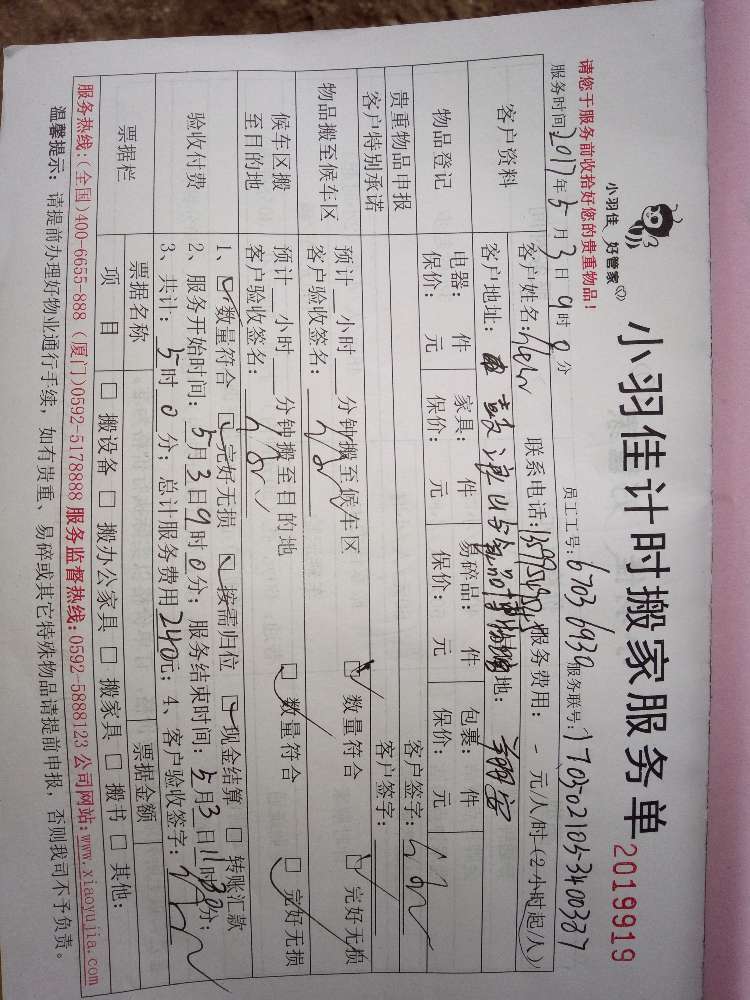 小羽佳 好管家
小羽佳计时搬家服务单 2019919
请您于服务前收拾好您的贵重物品!
员工工号: 6703 6939 服务联号: 1703-02105-3400387
服务时间 2017年5月3日9时0分
客户资料
客户姓名: 联系电话: 服务费用: - 元/人/时(2小时起/人)
客户地址: 地:
物品登记
电器: 件 家具: 件 易碎品: 件 包裹: 件
保价: 元 保价: 元 保价: 元 保价: 元
贵重物品申报 客户签字:
客户特别承诺 客户签字:
物品搬至候车区
预计__小时__分钟搬至候车区 数量符合 完好无损
客户验收签名:
候车区搬至目的地
预计__小时__分钟搬至目的地 数量符合 完好无损
客户验收签名:
验收付费
1、数量符合 完好无损 按需归位 现金结算 转账汇款
2、服务开始时间: 5月3日9时0分; 服务结束时间: 5月3日11时30分;
3、共计: 5时0分; 总计服务费用240元; 4、客户验收签字:
票据栏
票据名称 票据金额
项目 搬设备 搬办公家具 搬家具 搬书 其他:
服务热线:(全国)400-6655-888 (厦门)0592-5178888 服务监督热线:0592-5888123 公司网站:www.xiaoyujia.com
温馨提示: 请提前办理好物业通行手续,如有贵重、易碎或其它特殊物品请提前申报,否则我司不予负责。